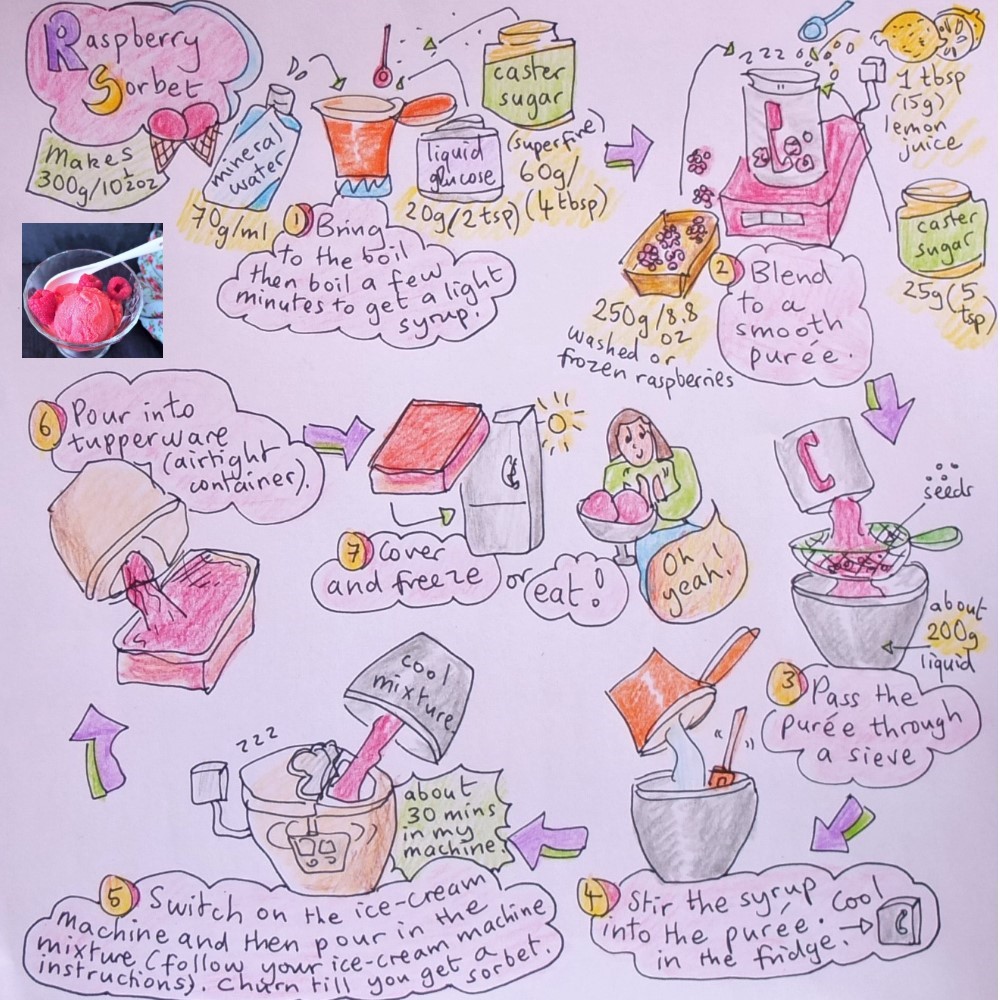 Raspberry
Sorbet
Makes
300g/10½oz
mineral
water
70g/ml
liquid
glucose
20g/(2tsp)
caster
sugar
(superfine)
60g/
(4tbsp)
1 Bring
to the boil
then boil a few
minutes to get a light
syrup!
zzz
1 tbsp
(15g)
lemon
juice
caster
sugar
25g (5
tsp)
250g/8.8
oz
washed or
frozen raspberries
2 Blend
to a
smooth
purée.
seeds
about
200g
liquid
3 Pass the
purée through
a sieve
4 Stir the syrup
into the purée. Cool
in the fridge.
cool
mixture
zzz
about
30 mins
in my
machine.
5 Switch on the ice-cream
machine and then pour in the
mixture (follow your ice-cream machine
instructions). Churn till you get a
sorbet.
6 Pour into
tupperware
(airtight
container).
7 Cover
and freeze
or
eat!
Oh!
yeah!